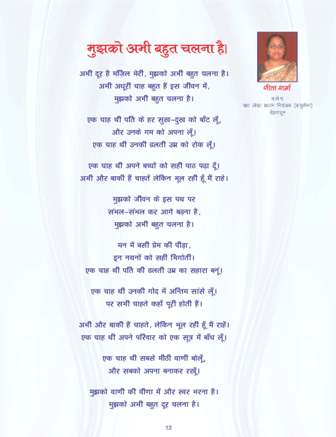 मुझको अभी बहुत चलना है।
अभी दूर है मंज़िल मेरी, मुझको अभी बहुत चलना है।
अभी अधूरी चाह बहुत हैं इस जीवन में,
मुझको अभी बहुत चलना है।
एक चाह थी पति के हर सुख-दुख को बाँट लूँ,
और उनके गम को अपना लूँ।
एक चाह थी उनकी ढलती उम्र को रोक लूँ।
एक चाह थी अपने बच्चों को सही पाठ पढ़ा दूँ।
अभी और बाकी हैं चाहतें लेकिन भूल रही हूँ मैं राहें।
मुझको जीवन के इस पथ पर
संभल-संभल कर आगे बढ़ना है,
मुझको अभी बहुत चलना है।
मन में बसी प्रेम की पीड़ा,
इन नयनों को सही भिगोती।
एक चाह थी पति की ढलती उम्र का सहारा बनूं।
एक चाह थी उनकी गोद में अन्तिम सांसे लूँ।
पर सभी चाहते कहाँ पूरी होती हैं।
अभी और बाकी हैं चाहते, लेकिन भूल रही हूँ मैं राहें।
एक चाह थी अपने परिवार को एक सूत्र में बाँध लूँ।
एक चाह थी सबसे मीठी वाणी बोलूँ,
और सबको अपना बनाकर रखूँ।
मुझको वाणी की वीणा में और स्वर भरना है।
मुझको अभी बहुत दूर चलना है।
गीता शर्मा
देहरादून
13